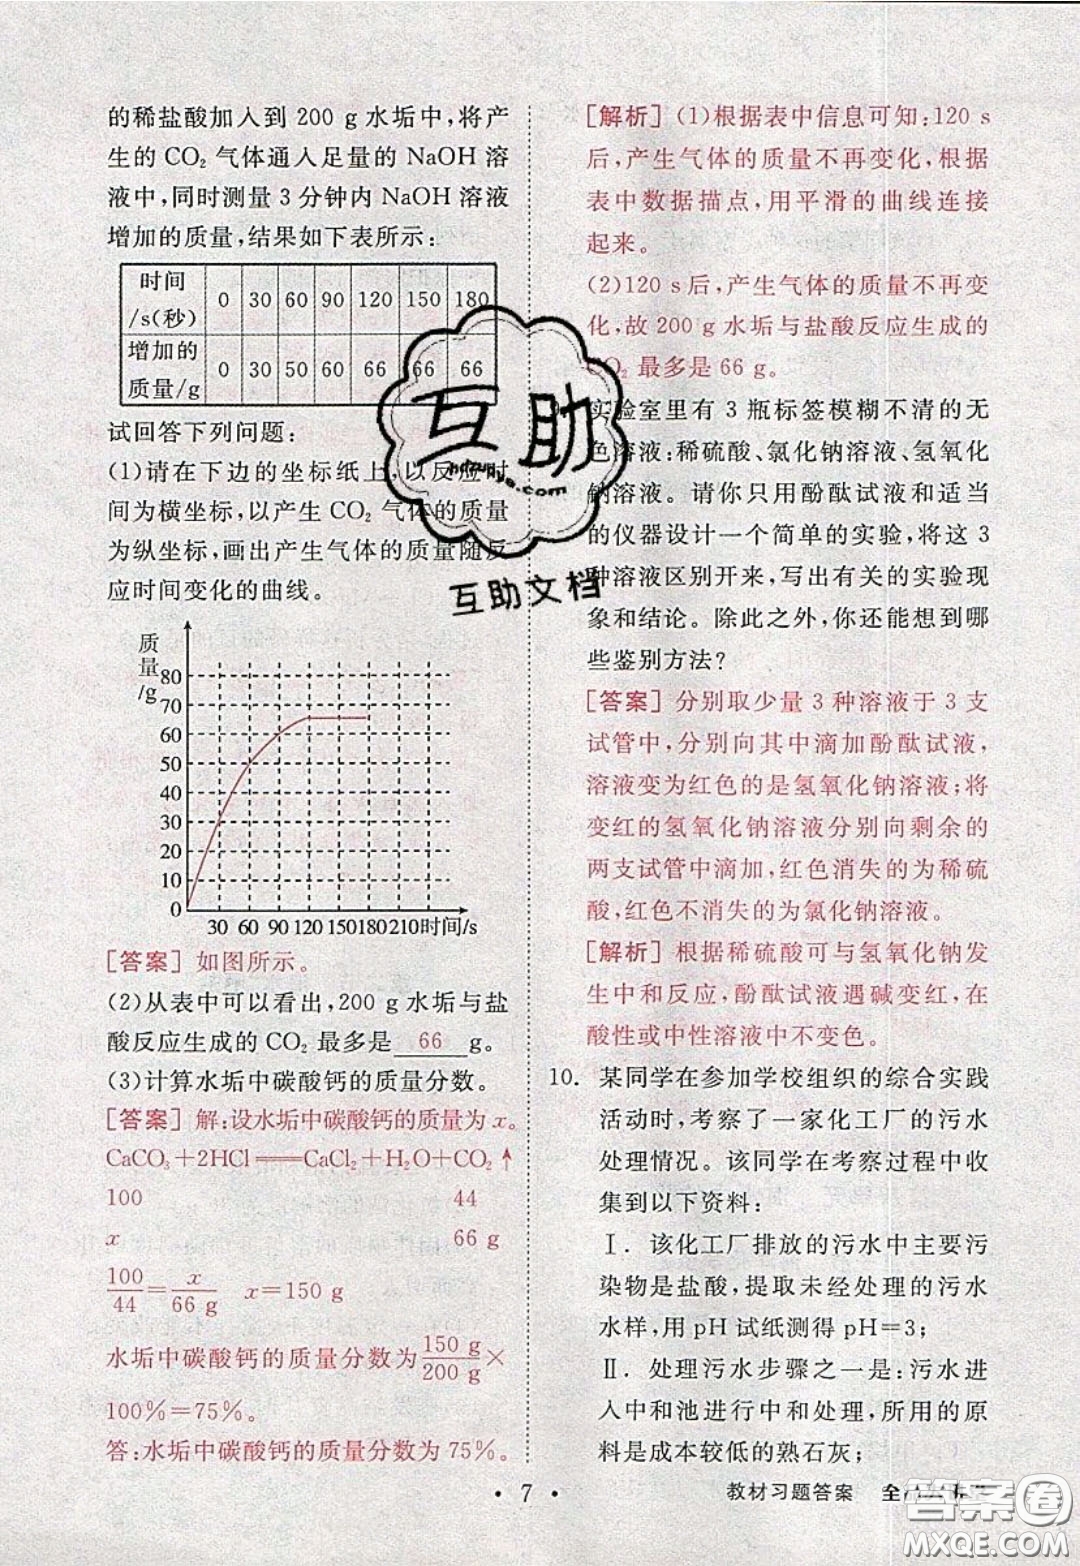 的稀盐酸加入到 200 g 水垢中,将产
生的 CO₂ 气体通入足量的 NaOH 溶
液中,同时测量 3 分钟内 NaOH 溶液
增加的质量,结果如下表所示:
时间/s(秒) 0 30 60 90 120 150 180
增加的质量/g 0 30 50 60 66 66 66
试回答下列问题:
(1)请在下边的坐标纸上,以反应时
间为横坐标,以产生 CO₂ 气体的质量
为纵坐标,画出产生气体的质量随反
应时间变化的曲线。
质量/g
80
70
60
50
40
30
20
10
0
30 60 90 120 150 180 210 时间/s
[答案] 如图所示。
(2)从表中可以看出,200 g 水垢与盐
酸反应生成的 CO₂ 最多是 66 g。
(3)计算水垢中碳酸钙的质量分数。
[答案] 解:设水垢中碳酸钙的质量为 x。
CaCO₃+2HCl══CaCl₂+H₂O+CO₂↑
100 44
x 66 g
100/44=x/66 g x=150 g
水垢中碳酸钙的质量分数为150 g/200 g×
100%=75%。
答:水垢中碳酸钙的质量分数为 75%。
[解析] (1)根据表中信息可知:120 s
后,产生气体的质量不再变化,根据
表中数据描点,用平滑的曲线连接
起来。
(2)120 s后,产生气体的质量不再变
化,故 200 g 水垢与盐酸反应生成的
CO₂ 最多是 66 g。
实验室里有 3 瓶标签模糊不清的无
色溶液:稀硫酸、氯化钠溶液、氢氧化
钠溶液。请你只用酚酞试液和适当
的仪器设计一个简单的实验,将这 3
种溶液区别开来,写出有关的实验现
象和结论。除此之外,你还能想到哪
些鉴别方法?
[答案] 分别取少量 3 种溶液于 3 支
试管中,分别向其中滴加酚酞试液,
溶液变为红色的是氢氧化钠溶液;将
变红的氢氧化钠溶液分别向剩余的
两支试管中滴加,红色消失的为稀硫
酸,红色不消失的为氯化钠溶液。
[解析] 根据稀硫酸可与氢氧化钠发
生中和反应,酚酞试液遇碱变红,在
酸性或中性溶液中不变色。
10. 某同学在参加学校组织的综合实践
活动时,考察了一家化工厂的污水
处理情况。该同学在考察过程中收
集到以下资料:
Ⅰ. 该化工厂排放的污水中主要污
染物是盐酸,提取未经处理的污水
水样,用 pH 试纸测得 pH=3;
Ⅱ. 处理污水步骤之一是:污水进
入中和池进行中和处理,所用的原
料是成本较低的熟石灰;
互助
互助文档
• 7 •
教材习题答案 全
答案卷
MXQE.COM